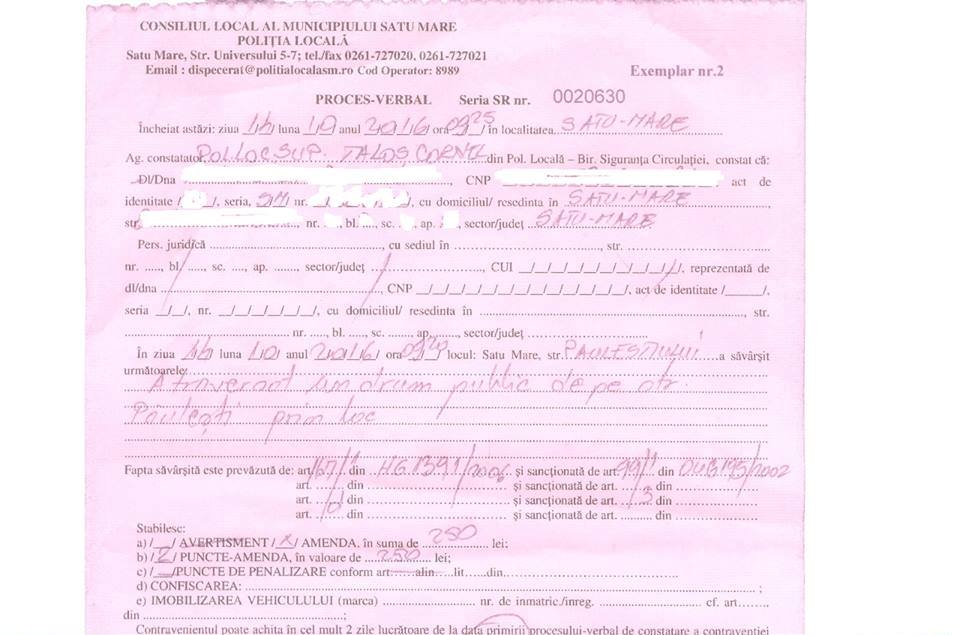 CONSILIUL LOCAL AL MUNICIPIULUI SATU MARE
POLIȚIA LOCALĂ
Satu Mare, Str. Universului 5-7; tel./fax 0261-727020, 0261-727021
Email : dispecerat@politialocalasm.ro Cod Operator: 8989
Exemplar nr.2
PROCES-VERBAL Seria SR nr. 0020630
Încheiat astăzi: ziua luna 10 anul 2016 ora 09 25 în localitatea SATU-MARE
Ag. constatator POL LOC SUP. TALOȘ CORNEL din Pol. Locală – Bir. Siguranța Circulației, constat că:
Dl/Dna , CNP act de
identitate / /, seria, SM nr. , cu domiciliul/ resedinta în SATU-MARE
str nr. , bl. , sc. , ap. , sector/județ SATU-MARE
Pers. juridică , cu sediul în , str.
nr. ....., bl. ...., sc. ...., ap. ....... sector/județ , CUI _/_/_/_/_/_/_/_/_/, reprezentată de
dl/dna , CNP _/_/_/_/_/_/_/_/_/_/_/_/_/, act de identitate /_____/,
seria _/_/, nr. _/_/_/_/_/_/, cu domiciliul/ resedinta în , str.
nr. ....., bl. ...., sc. ...., ap. ...., sector/județ
În ziua luna 10 anul 2016 ora 09 20 locul: Satu Mare, str. PAULESTIULUI a săvârșit
următoarele:
A traversat un drum public de pe str.
Păulești prin loc
Fapta săvârșită este prevăzută de: art 167/1 din HG 1391/2006 și sancționată de art. 99/1 din OUG 195/2002
art. din și sancționată de art. din
art. din și sancționată de art. din
art. din și sancționată de art. din
Stabilesc:
a) /__/ AVERTISMENT /X/ AMENDA, în suma de 250 lei;
b) /2/ PUNCTE-AMENDA, în valoare de 250 lei;
c) /__/PUNCTE DE PENALIZARE conform art......alin....lit.....din
d) CONFISCAREA: ;
e) IMOBILIZAREA VEHICULULUI (marca) nr. de inmatric./inreg. cf. art.
din ;
Contravenientul poate achita în cel mult 2 zile lucrătoare de la data primirii procesului-verbal de constatare a contravenției